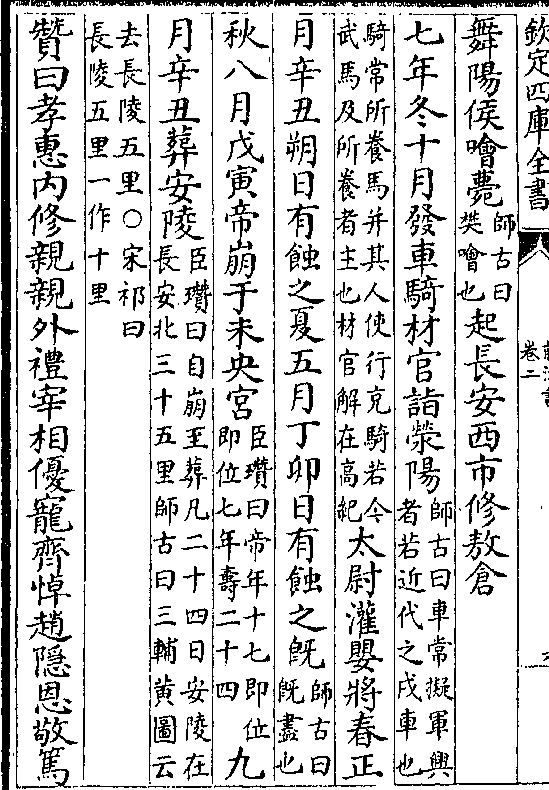 欽定四庫全書
卷二
舞陽侯噲薨師古曰樊噲也起長安西市修敖倉
七年冬十月發車騎材官詣滎陽師古曰車常擬軍興者若近代之戍車也
騎常所養馬并其人使行充騎若今武馬及所養者主也材官解在高紀太尉灌嬰將春正
月辛丑朔日有蝕之夏五月丁卯日有蝕之既師古曰既盡也
秋八月戊寅帝崩于未央宮臣瓚曰帝年十七即位即位七年壽二十四九
月辛丑葬安陵臣瓚曰自崩至葬凡二十四日安陵在長安北三十五里師古曰三輔黄圖云
去長陵五里○宋祁曰長陵五里一作十里
贊曰孝惠内修親親外禮宰相優寵齊悼趙隠恩敬篤